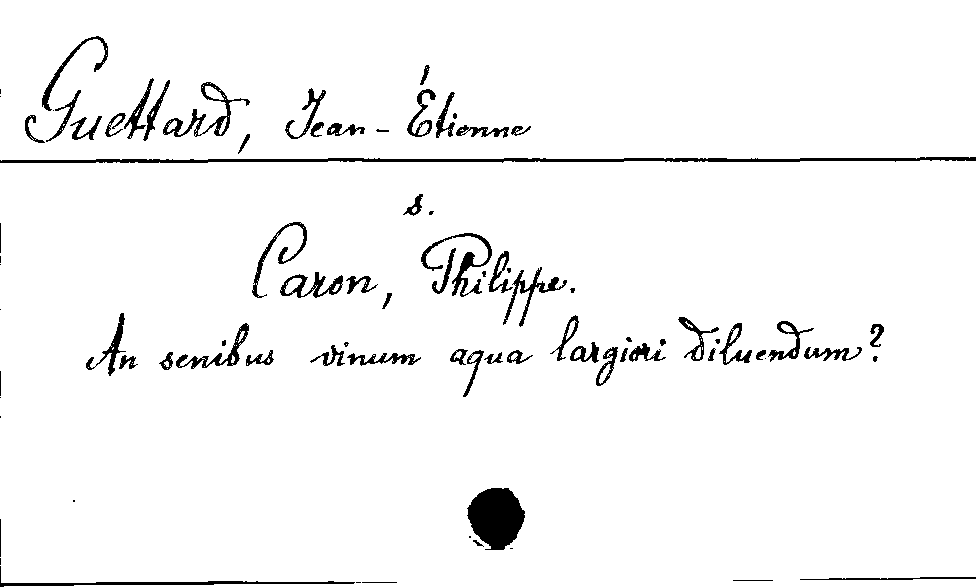 Guettard, Jean-Étienne
s.
Caron, Philippe.
An senibus vinum aqua largiori diluendum?